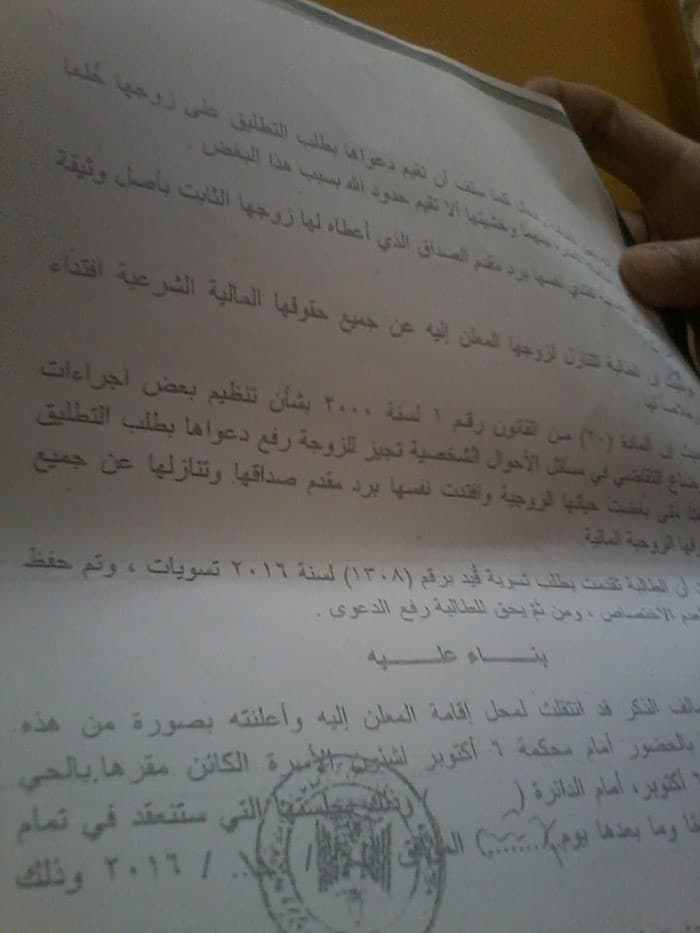 كما سلف أن تقيم دعواها بطلب التطليق على زوجها خلعا
وخشيتها ألا تقيم حدود الله بسبب هذا البغض .
نفسها برد مقدم الصداق الذي أعطاه لها زوجها الثابت بأصل وثيقة
الطالبة تتنازل لزوجها المعلن إليه عن جميع حقوقها المالية الشرعية افتداء
إن المادة (٢٠) من القانون رقم ١ لسنة ٢٠٠٠ بشأن تنظيم بعض اجراءات
التقاضي في مسائل الأحوال الشخصية تجيز للزوجة رفع دعواها بطلب التطليق
متى بغضت حياتها الزوجية وافتدت نفسها برد مقدم صداقها وتنازلها عن جميع
الزوجية المالية
أن الطالبة تقدمت بطلب تسوية قُيد برقم (١٣٠٨) لسنة ٢٠١٦ تسويات ، وتم حفظ
الاختصاص ، ومن ثم يحق للطالبة رفع الدعوى .
بنـــــاء عليـــــه
الذكر قد انتقلت لمحل إقامة المعلن إليه وأعلنته بصورة من هذه
بالحضور أمام محكمة ٦ أكتوبر لشئون الأسرة الكائن مقرها بالحي
أكتوبر، أمام الدائرة ( ) وذلك بجلستها التي ستنعقد في تمام
وما بعدها يوم (.......) الموافق / / ٢٠١٦ وذلك